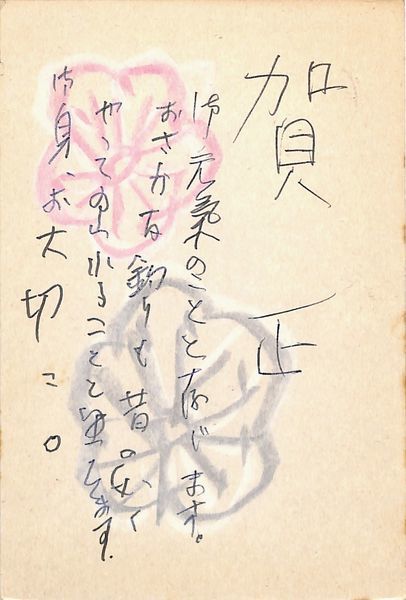 賀正
御元氣のことと存じます。
おさかな釣りも昔の如く
やって ることと思います。
御身、お大切に。